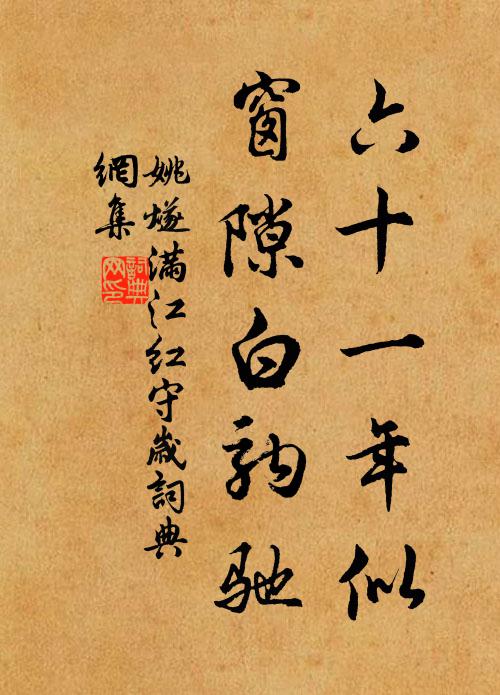 六十一年似
窗隙白驹驰
姚燧满江红守歲詞典
網集
詞典
网印